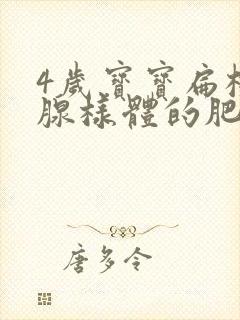 4歲寶寶扁桃
腺樣體的肥
唐多令